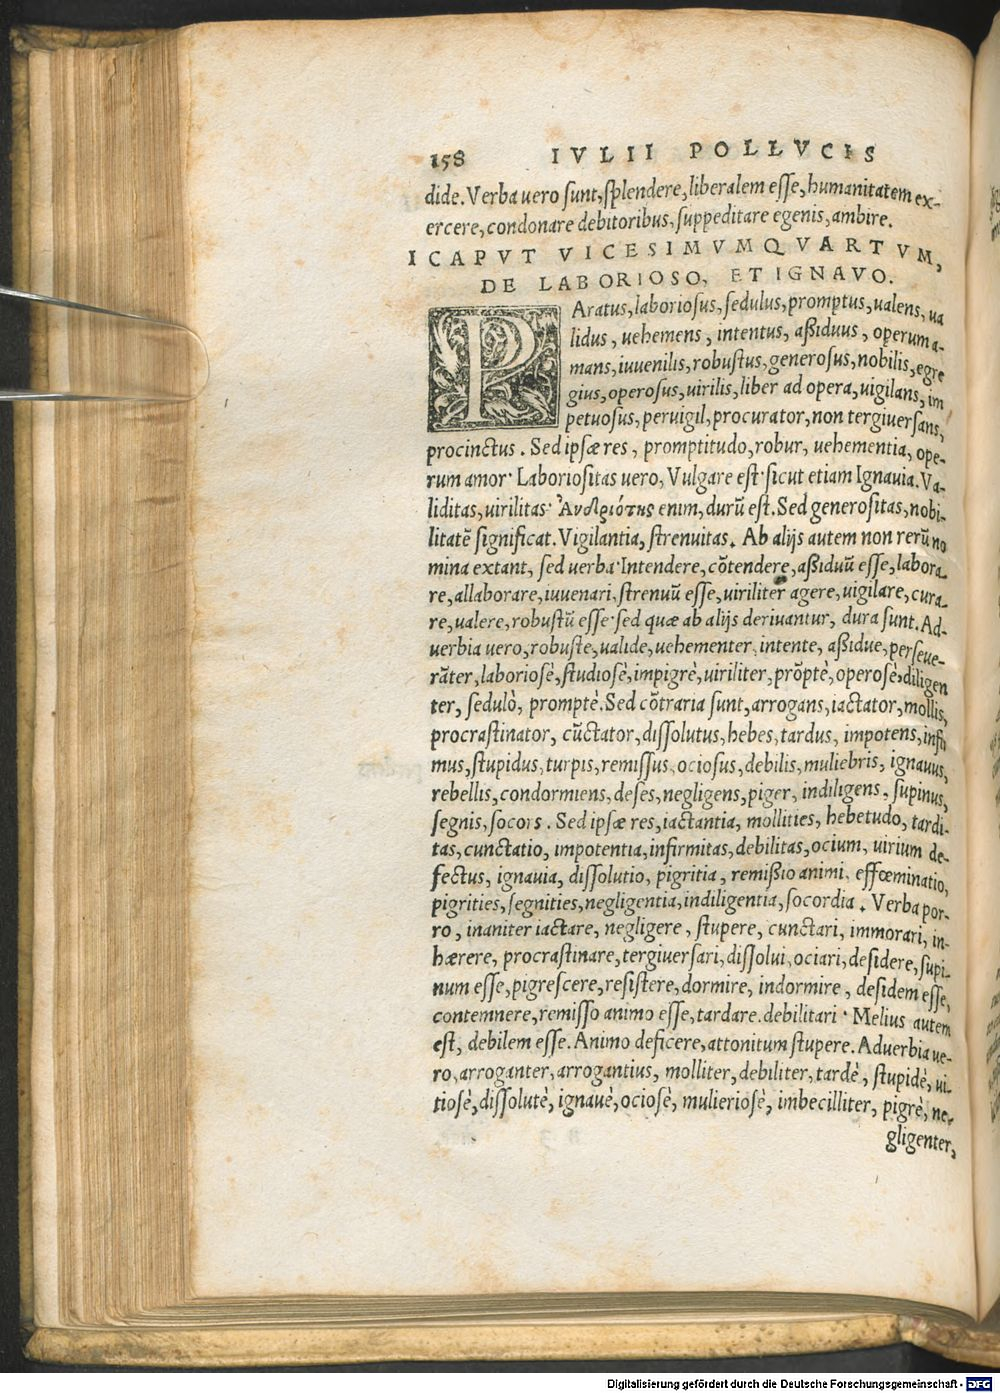 158 IVLII POLLVCIS
dide. Verba uero sunt, splendere, liberalem esse, humanitatem ex-
ercere, condonare debitoribus, suppeditare egenis, ambire.
I CAPVT VICESIMVMQVARTVM,
DE LABORIOSO, ET IGNAVO.
PAratus, laboriosus, sedulus, promptus, ualens, ua
lidus, uehemens, intentus, aßiduus, operum a-
mans, iuuenilis, robustus, generosus, nobilis, egre
gius, operosus, uirilis, liber ad opera, uigilans, im
petuosus, peruigil, procurator, non tergiuersans,
procinctus. Sed ipsæ res, promptitudo, robur, uehementia, ope-
rum amor· Laboriositas uero, Vulgare est· sicut etiam Ignauia. Va-
liditas, uirilitas· Ἀνδριότης enim, durū est. Sed generositas, nobi-
litatē significat. Vigilantia, strenuitas. Ab alijs autem non rerū no
mina extant, sed uerba· Intendere, cōtendere, aßiduū esse, labora-
re, allaborare, iuuenari, strenuū esse, uiriliter agere, uigilare, cura-
re, ualere, robustū esse· sed quæ ab alijs deriuantur, dura sunt. Ad-
uerbia uero, robuste, ualide, uehementer, intente, aßidue, perseue-
rāter, laboriosè, studiosè, impigrè, uiriliter, prōptè, operosè, diligen
ter, sedulò, promptè. Sed cōtraria sunt, arrogans, iactator, mollis,
procrastinator, cūctator, dissolutus, hebes, tardus, impotens, infir
mus, stupidus, turpis, remissus, ociosus, debilis, muliebris, ignauus,
rebellis, condormiens, deses, negligens, piger, indiligens, supinus,
segnis, socors. Sed ipsæ res, iactantia, mollities, hebetudo, tardi-
tas, cunctatio, impotentia, infirmitas, debilitas, ocium, uirium de-
fectus, ignauia, dissolutio, pigritia, remißio animi, effœminatio,
pigrities, segnities, negligentia, indiligentia, socordia. Verba por-
ro, inaniter iactare, negligere, stupere, cunctari, immorari, in-
hærere, procrastinare, tergiuersari, dissolui, ociari, desidere, supi-
num esse, pigrescere, resistere, dormire, indormire, desidem esse,
contemnere, remisso animo esse, tardare, debilitari· Melius autem
est, debilem esse. Animo deficere, attonitum stupere. Aduerbia ue-
ro, arroganter, arrogantius, molliter, debiliter, tardè, stupidè, ui-
tiosè, dissolutè, ignauè, ociosè, mulieriosè, imbecilliter, pigrè, ne-
gligenter,
Digitalisierung gefördert durch die Deutsche Forschungsgemeinschaft - DFG